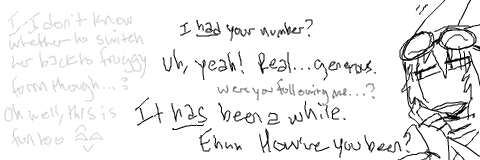 I-I don't know
whether to switch
her back to froggy
form though...?
Oh well, this is
fun too
I had your number?
Uh, yeah! Real... generous.
were you following me...?
It has been a while.
How've you been?